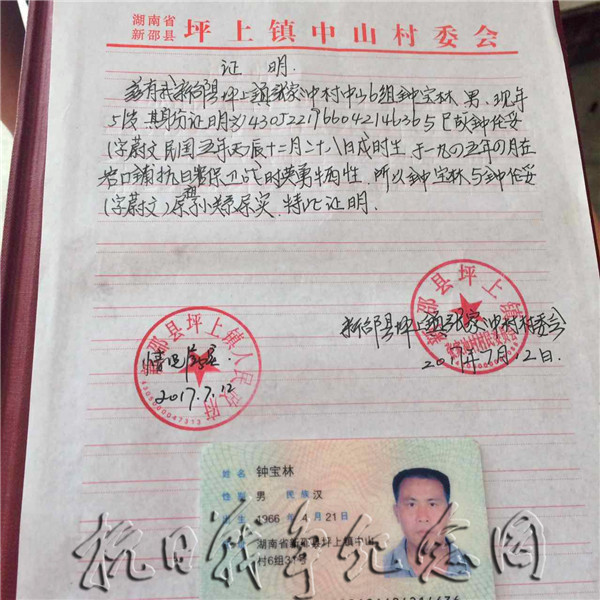 湖南省
新邵县 坪上镇中山村委会
证 明.
兹有我新邵县坪上镇张家冲村中山6组钟宝林 男、现年
51岁,其身份证明为430522196604214636与已故钟伦妥
(字蔚文民国五年丙辰十二月二十八日戌时生 于一九四五年四月在
岩口铺抗日 保卫战时英勇牺牲 所以钟宝林与钟伦妥
(字蔚文)原祖孙关系属实 特此证明.
新邵县坪上镇张家冲村村委会
2017年7月12日.
新邵县坪上镇人民政府
4305000047313
情况属实.
2017.7.12
姓名 钟宝林
性别 男 民族 汉
出生 1966 年 4 月 21 日
湖南省新邵县坪上镇中山
村6组31号
抗日战争纪念网